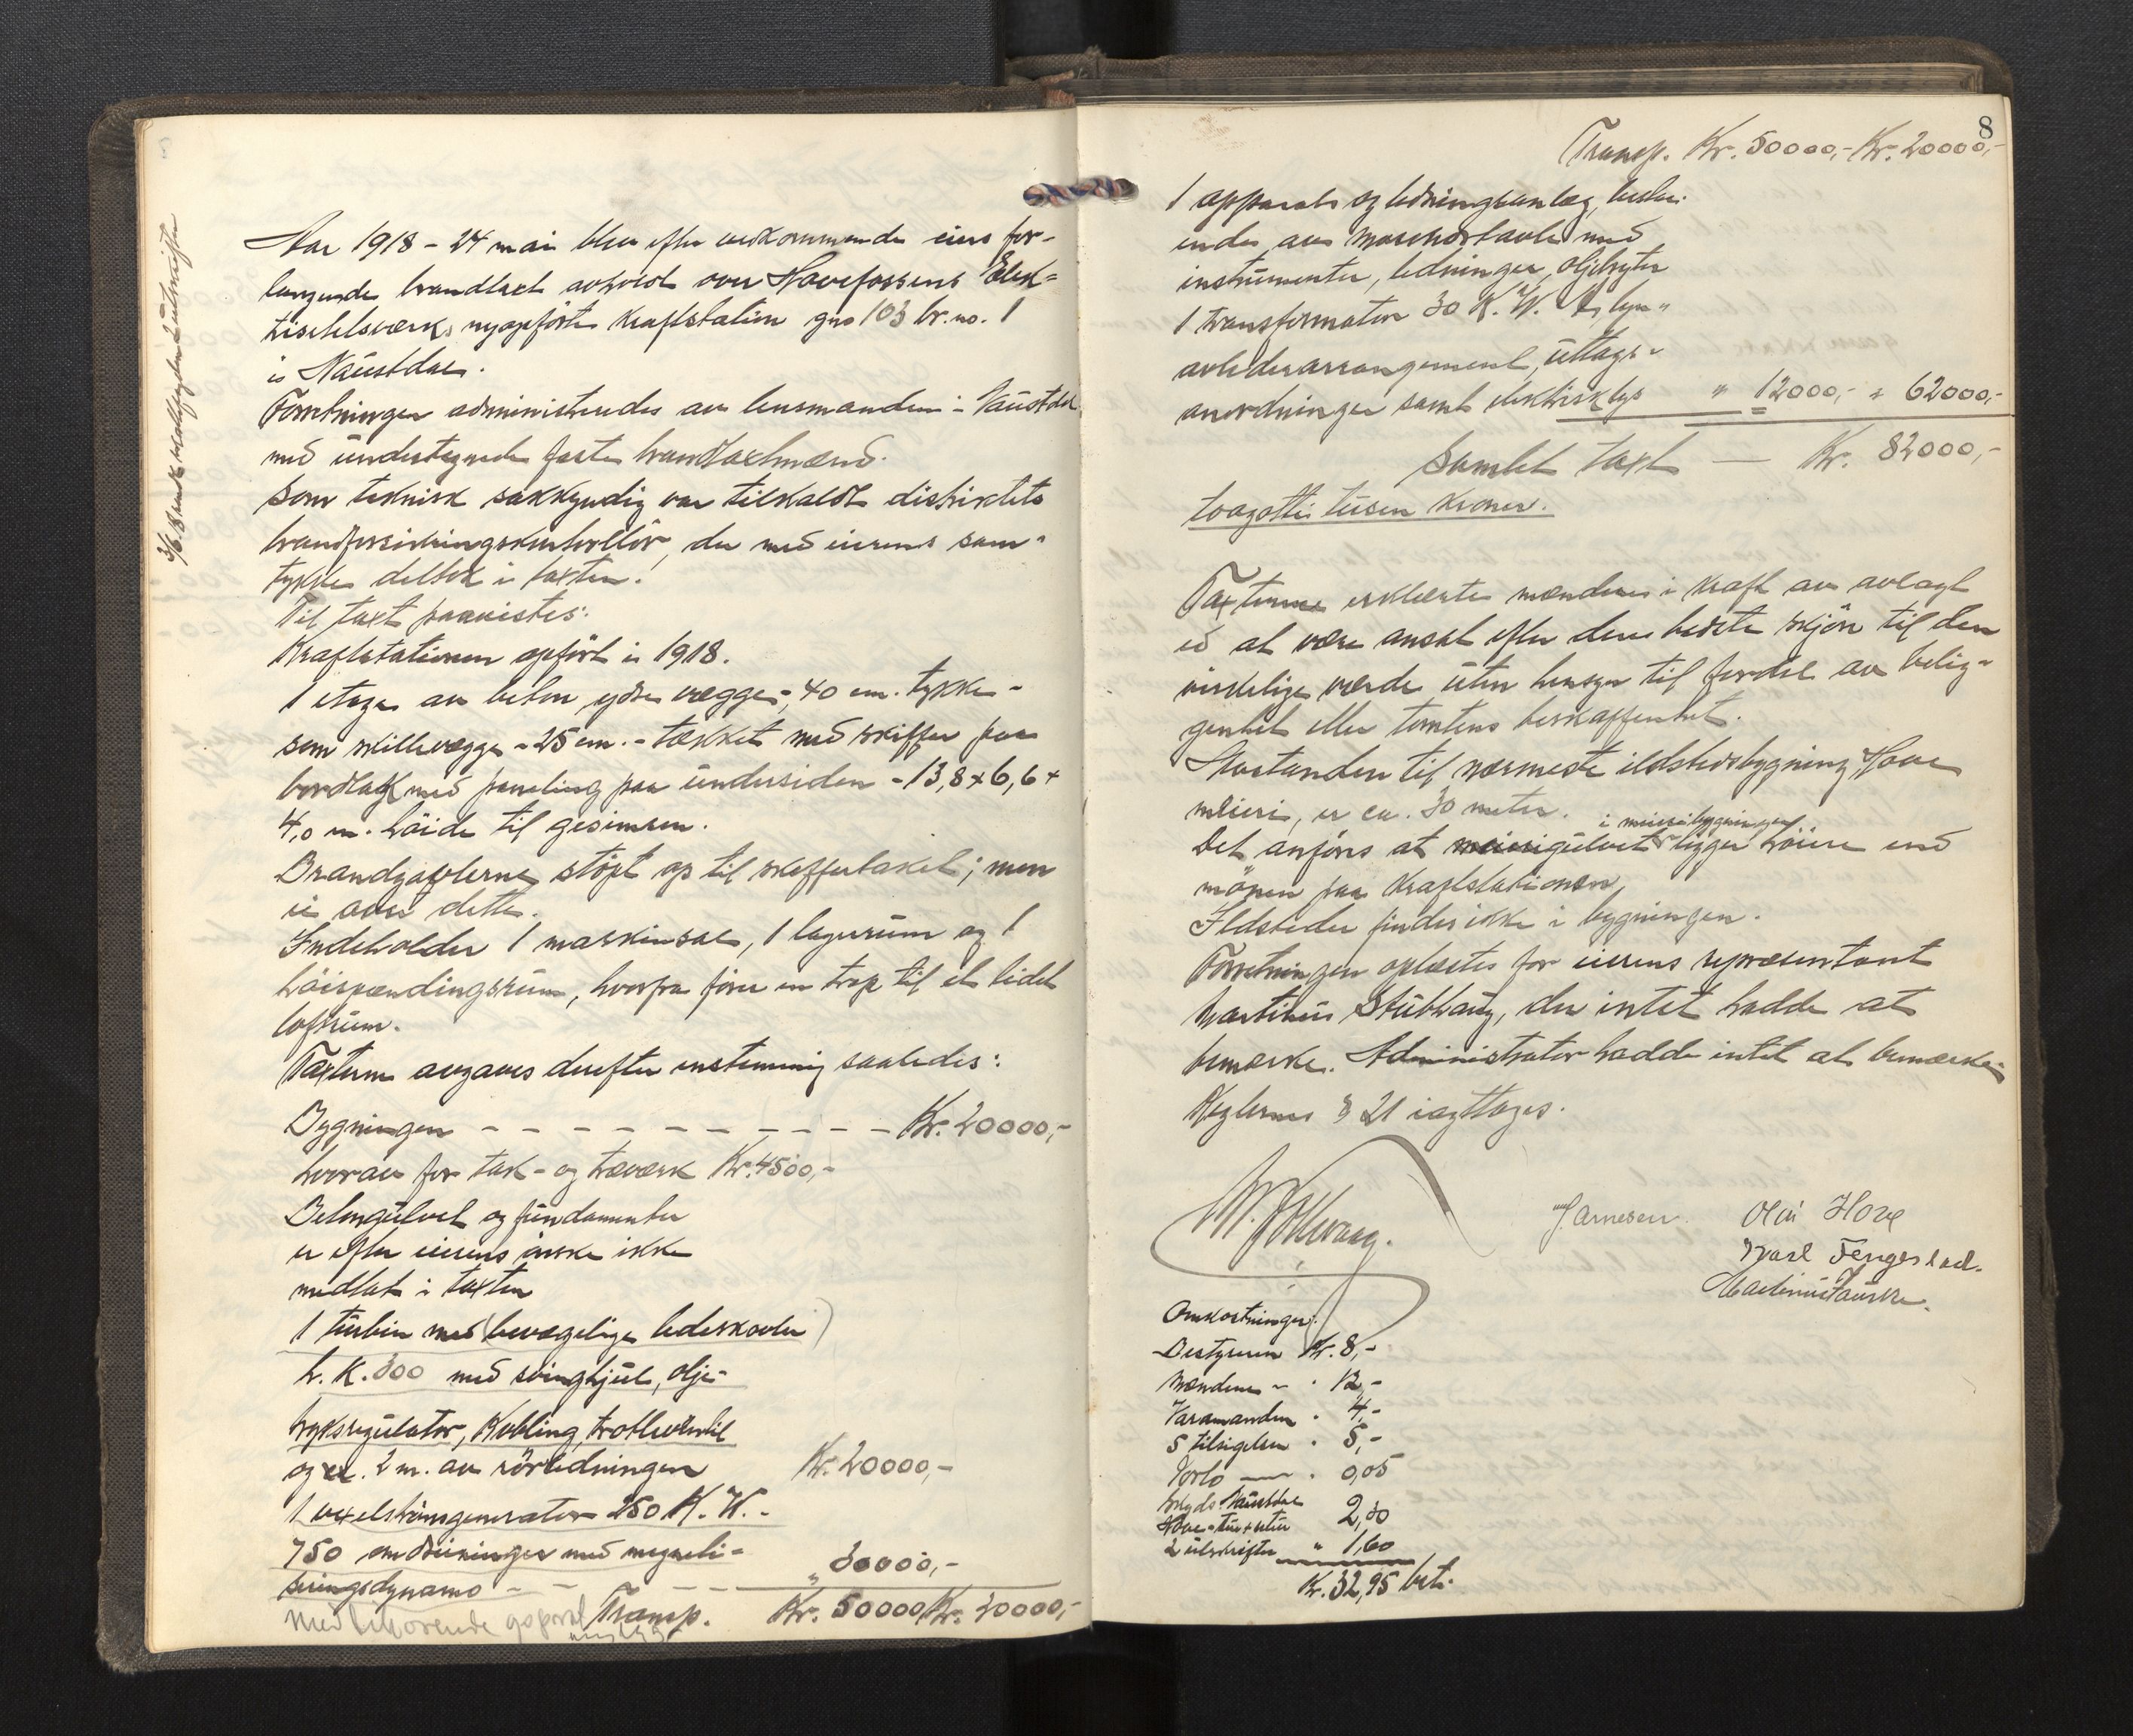 Aar 1918 - 24 mai blev efter vedkommende eiers for-
langende brandtaxt avholdt over Hovefossens Elek-
tricitetsverks nyopførte kraftstation gno 103 br.no. 1
i Naustdal.
Forretningen administreredes av lensmanden i Naustdal
med undertegnede faste brandtaxtmænd.
Som teknisk sakkyndig var tilkaldt distriktets
brandforsikringskontrollør, der med eierens sam-
tykke deltok i taxten.
Til taxt paavistes:
Kraftstationen opført i 1918.
1 etage av beton ydre vægge - 40 cm. tykke -
som skillevægge - 25 cm. - tækket med skiffer paa
bordtak med paneling paa undersiden - 13,8 x 6,6 x
4,0 m. høide til gesimsen.
Brandgavlerne støpt op til skiffertaket; men
ei over dette.
Indeholder 1 maskinsal, 1 lagerrum og 1
høispændingsrum, hvorfra fører en trap til et lidet
loftrum.
Taxterne avgaves derefter enstemmig saaledes:
Bygningen - - - - - - - - - - Kr. 20000,-
hvorav for tak- og træverk Kr. 4500,-
Betongulvet og fundamenter
er efter eierens ønske ikke
medtat i taxten
1 turbin med (bevægelige ledeskovler)
h. K. 300 med svinghjul, olje-
tryksregulator, Kobling, trotleventil
og ca. 2 m. av rørledningen Kr. 20000,-
1 vexelstrømsgenerator 250 K. W. -
750 omdreininger med magneti-
seringsdynamo - - - - " 30000,-
Med tilhørende
Transp. Kr. 50000 Kr. 20000,-
3/6 2 utskrifter
8
Transp. Kr. 50000,- Kr. 20000,-
1 apparat og ledningsanlæg, bestaa-
ende av marmortavle med
instrumenter, ledninger, oljebryter
1 transformator 30 K. W. lyn-
avlederarrangement, uttags-
anordninger samt elektrisk lys " 12000,- " 62000,-
Samlet taxt — Kr. 82000,-
toogotti tusen kroner.
Taxterne erklærte mændene i kraft av avlagt
ed at være ansat efter deres bedste skjøn til den
virkelige værde uten hensyn til fordel av belig-
genhet eller tomtens beskaffenhet.
Avstanden til nærmeste ildstedsbygning, Hove
meieri, er ca. 30 meter.
i meieribygningen
Det anføres at meierigulvet ligger høiere end
mønen paa kraftstationen.
Ildsteder findes ikke i bygningen.
Forretningen oplæstes for eierens repræsentant
Martinus Stubhaug, der intet hadde at
bemærke. Administrator hadde intet at bemærke.
Reglernes § 21 iagttages.
J. Arnesen. Olai Hove
Karl Fengestad.
Martinus Taurke.
Omkostninger:
Bestyreren Kr. 8,-
Mændene - " 12,-
Varamanden " 4,-
5 tilsigelser " 5,-
Porto — " 0,05
Skyds Naustdal
Hove - tur + retur 2,30
2 utskrifter " 1,60
Kr. 32,95 bet.